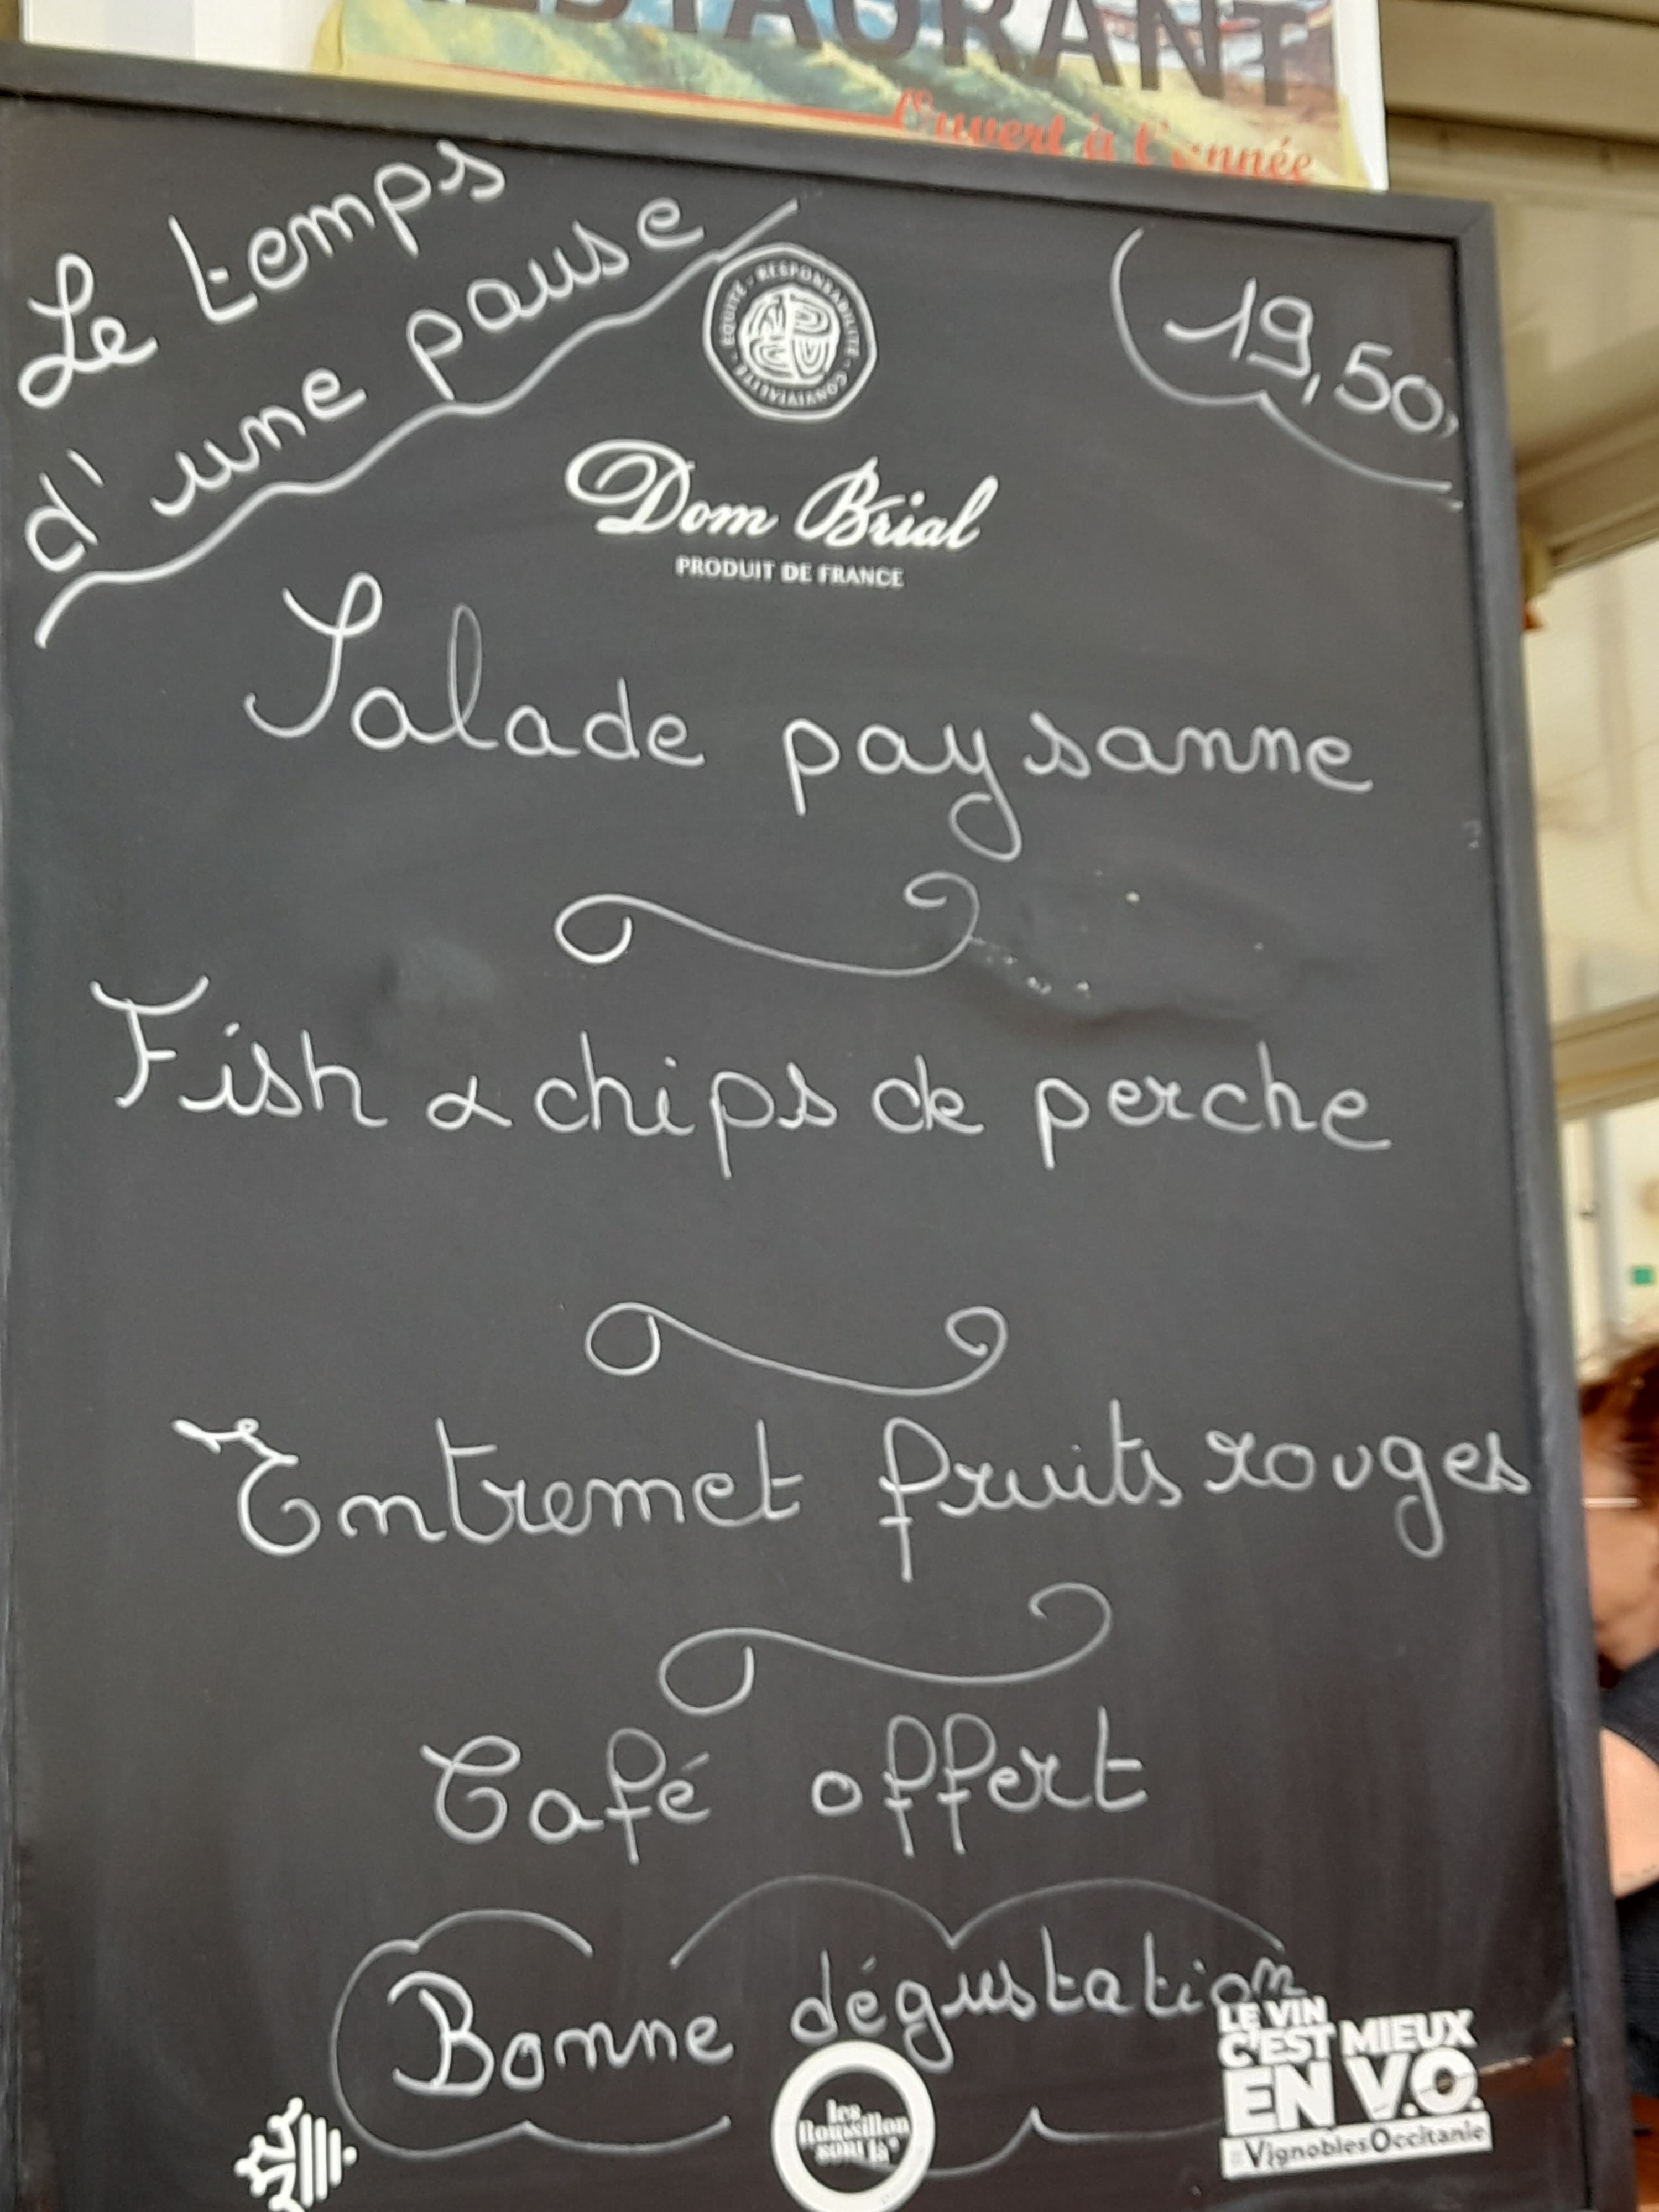 RESTAURANT
Ouvert à l'année
Le temps
d'une pause
19,50,
EQUITÉ - RESPONSABILITÉ - CONVIVIALITÉ
Dom Brial
PRODUIT DE FRANCE
Salade paysanne
Fish & chips de perche
Entremet fruits rouges
Café offert
Bonne dégustation
LE VIN
C'EST MIEUX
EN V.O.
#VignoblesOccitanie
les
Roussillon
sont là